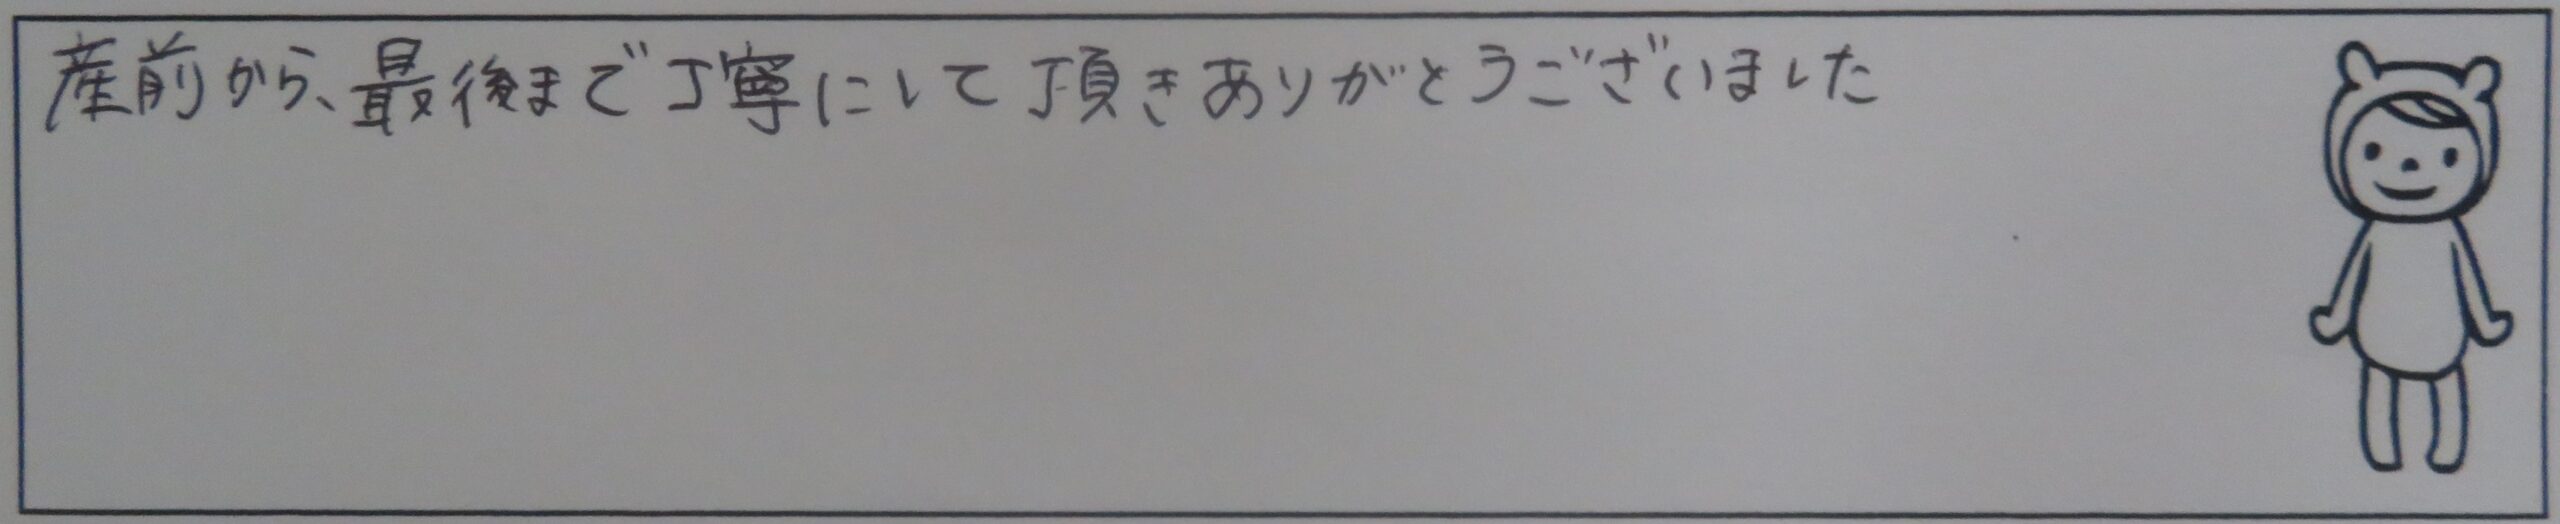 産前から、最後まで丁寧にして頂きありがとうございました